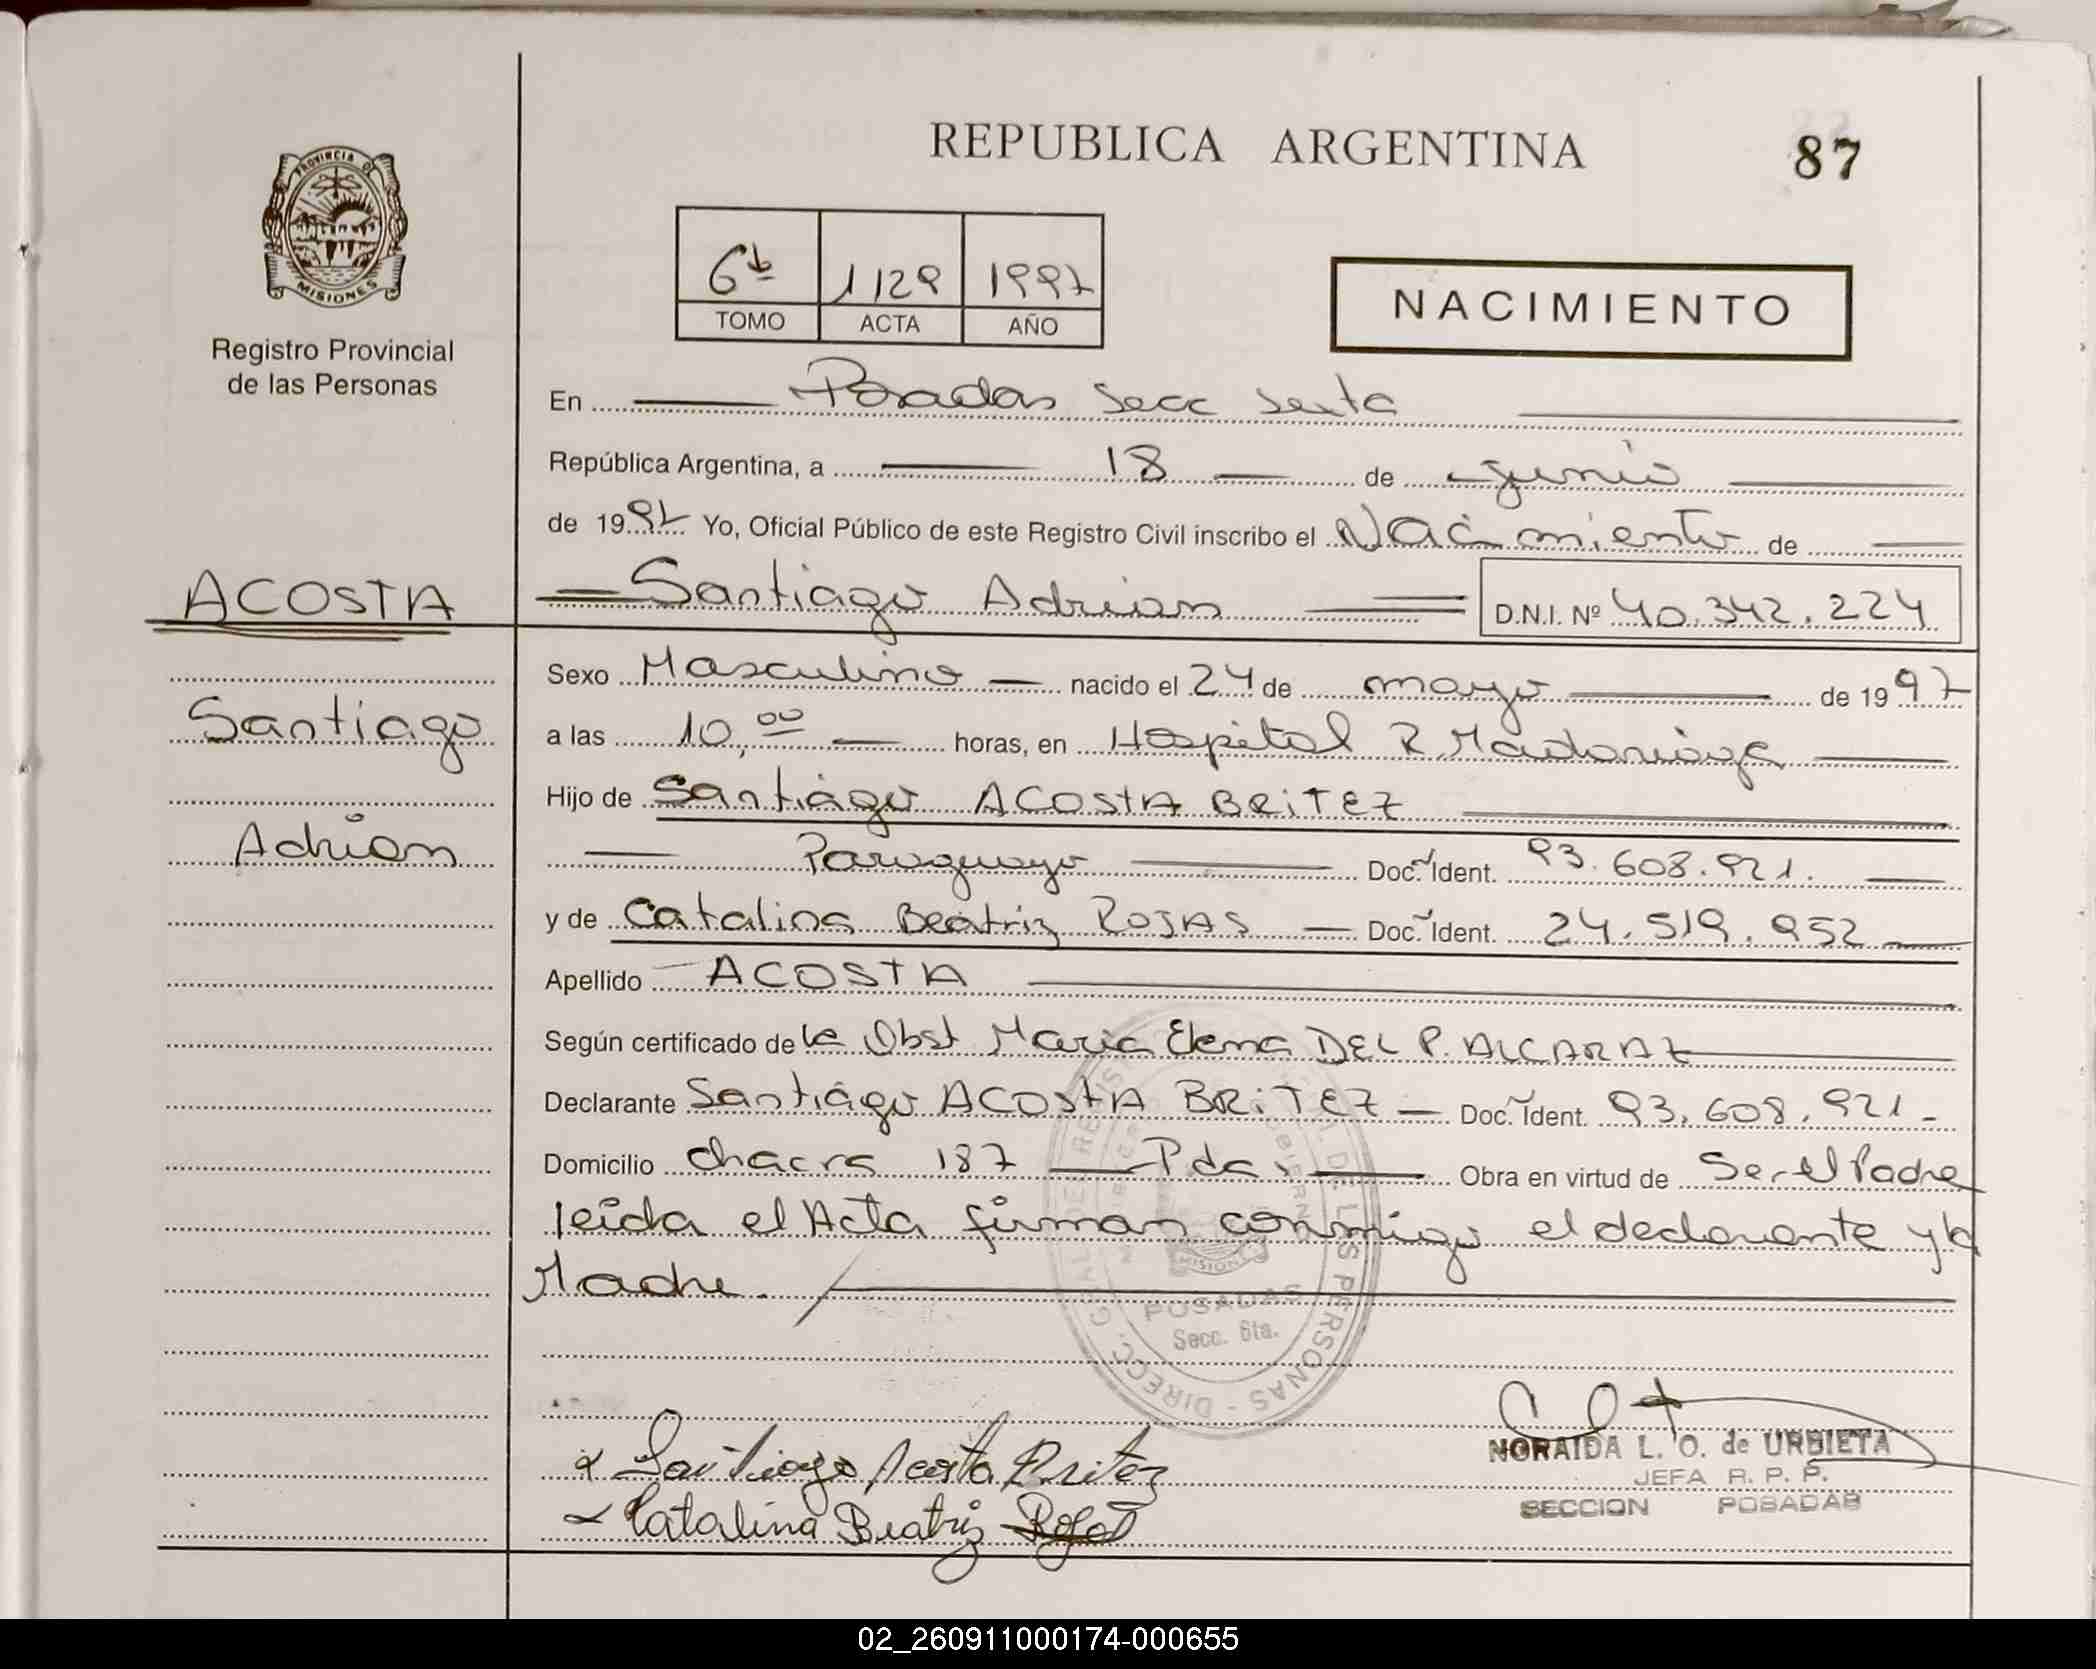 REPUBLICA ARGENTINA
87
PROVINCIA DE
MISIONES
Registro Provincial
de las Personas
6to 1129 1997
TOMO ACTA AÑO
NACIMIENTO
En Posadas Secc Sexta
República Argentina, a 18 de junio
de 1997 Yo, Oficial Público de este Registro Civil inscribo el Nacimiento de
ACOSTA
Santiago Adrian D.N.I. Nº 40.342.224
Sexo Masculino nacido el 24 de mayo de 1997
Santiago
a las 10,00 horas, en Hospital R Madariaga
Hijo de Santiago ACOSTA BRITEZ
Adrian
Paraguayo Doc. Ident. 93.608.921.
y de Catalina Beatriz ROJAS Doc. Ident. 24.519.952
Apellido ACOSTA
Según certificado de la Obst Maria Elena DEL P. ALCARAZ
Declarante Santiago ACOSTA BRITEZ Doc. Ident. 93.608.921-
Domicilio chacra 187 Pdas Obra en virtud de Ser el Padre
leida el Acta firman conmigo el declarante y la
Madre.
DIRECC. GRAL. DEL REGIST. PROVINCIAL DE LAS PERSONAS -
MISIONES
POSADAS
Secc. 6ta.
Santiago Acosta Britez
Catalina Beatriz Rojas
NORAIDA L. O. de URBIETA
JEFA R. P. P.
SECCION POSADAS
02_260911000174-000655